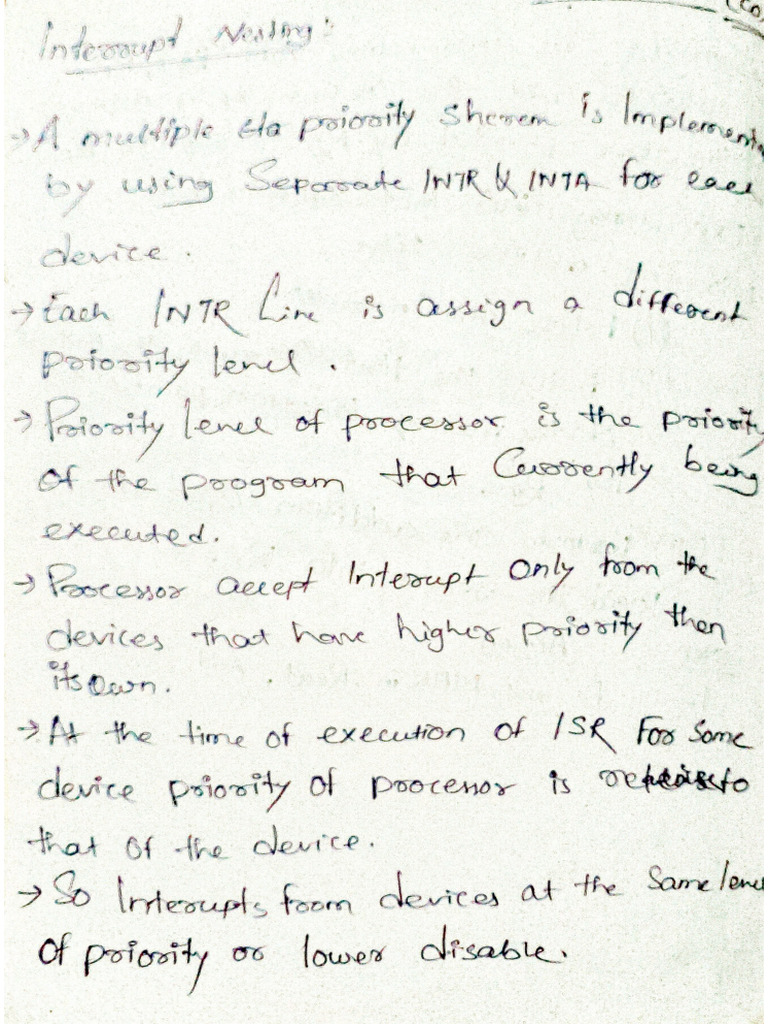 (CO
Interrupt Nesting:
→ A multiple priority Sherem is Implement
by using Separate INTR & INTA for each
device.
→ Each INTR Line is assign a different
priority level.
→ Priority level of processor is the priority
of the program that Currently being
executed.
→ Processor accept Interupt Only from the
devices that have higher priority then
its own.
→ At the time of execution of ISR For some
device priority of processor is to
that of the device.
→ So Interupts from devices at the Same level
of priority or lower disable.